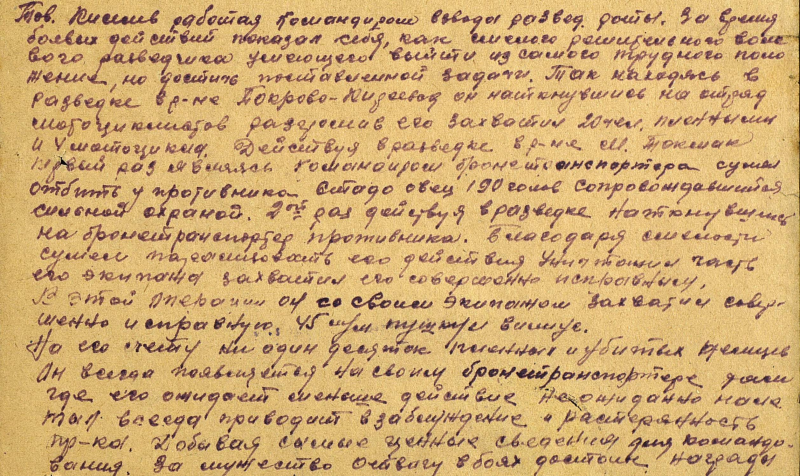 Тов. Киселев работая командиром взвода развед. роты. За время
боевых действий показал себя, как смелого решительного воле
вого разведчика умеющего выйти из самого трудного поло
жение, но достичь поставленной задачи. Так находясь в
разведке в р-не Покрово-Киреевод он наткнувшись на отряд
мотоциклистов разгромив его захватил 20 чел. пленными
и 4 мотоцикла. Действуя в разведке в р-не М. Токмак
первый раз являясь командиром бронетранспортера сумел
отбить у противника стадо овец 190 голов сопровождавшийся
сильной охраной. 2ой раз действуя в разведке наткнувшись
на бронетранспортер противника. Благодаря смелости
сумел парализовать его действия уничтожил часть
его экипажа захватил его совершенно исправным.
В этой операции он со своим экипажем захватил совер-
шенно исправную 45 м/м пушку и
На его счету ни один десяток пленных и убитых немцев
Он всегда появляется на своем бронетранспортере там
где его ожидает меньше действие неожиданно
всегда приводит в заблуждение и растерянность
пр-ка. Добывая самые ценные сведения для командо-
вания. За мужество отвагу в боях достоин награду